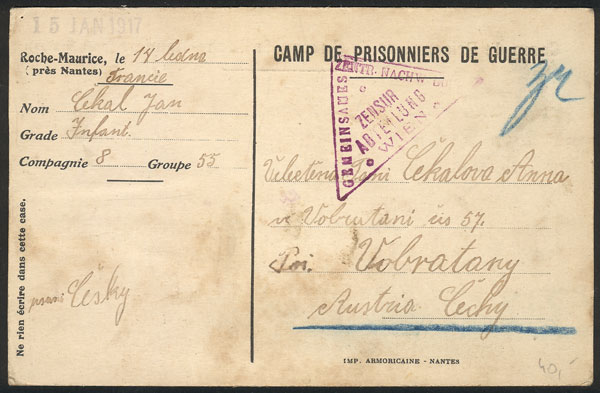 15 JAN 1917
Roche-Maurice, le 14 ledna
(près Nantes) Francie
Nom Čekal Jan
Grade Infant.
Compagnie 8 Groupe 55
Ne rien écrire dans cette case.
psano Česky
CAMP DE PRISONNIERS DE GUERRE
GEMEINSAMES ZENTR. NACHW.
ZENSUR
ABTEILUNG
WIEN
Paní Čekalova Anna
v Vobratani čís 57.
Vobratany
Austria Čechy
IMP. ARMORICAINE - NANTES
40,-